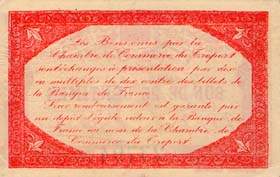 Les Bons émis par la
Chambre de Commerce du Tréport
sont échangés à présentation par dix
ou multiples de dix contre des billets de
la Banque de France.
Leur remboursement est garanti par
un dépôt d'égale valeur à la Banque de
France au nom de la Chambre de
Commerce du Tréport